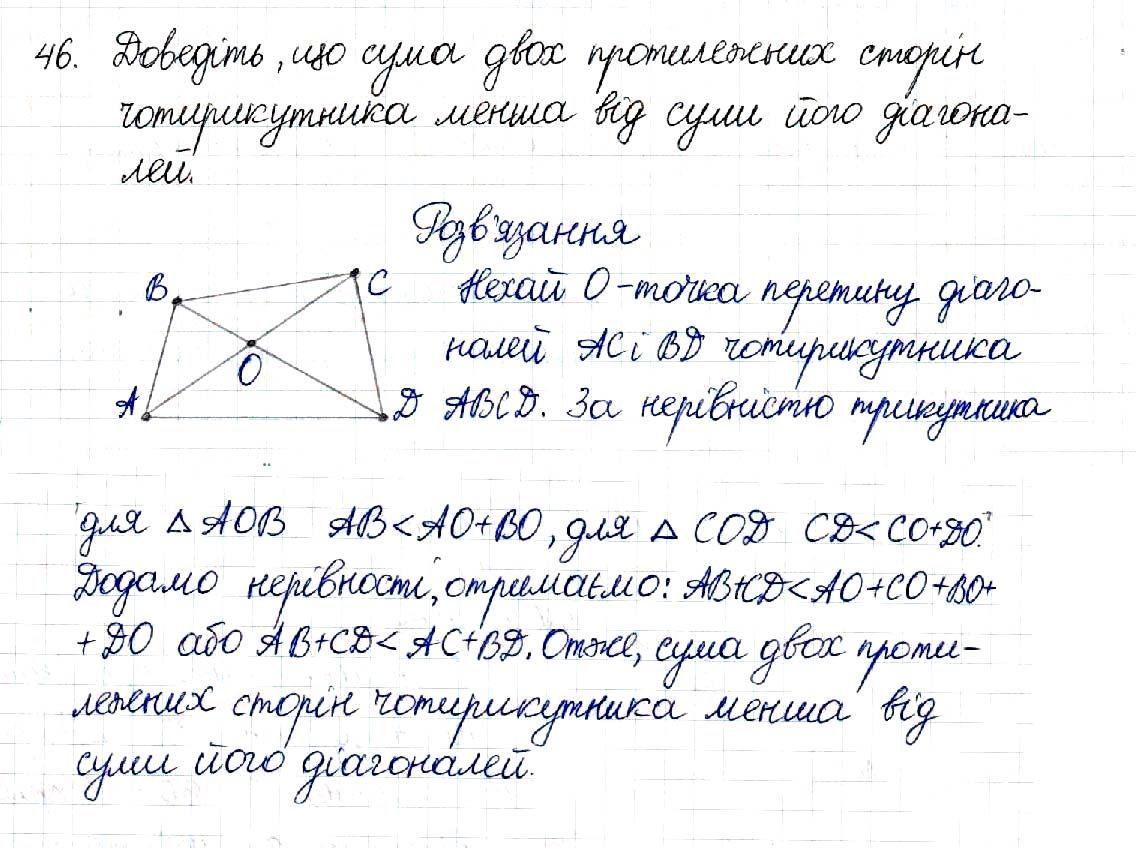 46. Доведіть, що сума двох протилежних сторін
чотирикутника менша від суми його діагона-
лей.
Розв'язання
B
C
O
A
D
Нехай O - точка перетину діаго-
налей AC і BD чотирикутника
ABCD. За нерівністю трикутника
для △ AOB AB < AO+BO, для △ COD CD < CO+DO.
Додамо нерівності, отримаємо: AB+CD < AO+CO+BO+
+DO або AB+CD < AC+BD. Отже, сума двох проти-
лежних сторін чотирикутника менша від
суми його діагоналей.